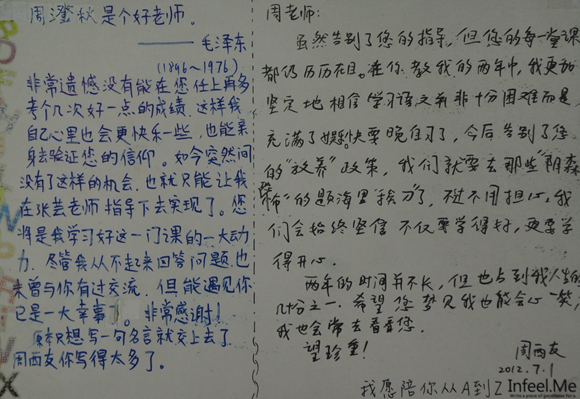 周澄秋是个好老师。
——毛泽东
(1896~1976)
非常遗憾没有能在您任上再多
考个几次好一点的成绩,这样我
自己心里也会更快乐一些,也能亲
身去验证您的信仰。如今突然间
没有了这样的机会,也就只能让我
在张芸老师指导下去实现了。您
将是我学习好这一门课的一大动
力,尽管我从不起来回答问题,也
未曾与你有过交流,但能遇见你
已是一大幸事了。非常感谢!
原本只想写一句名言就交上去了
周西友你写得太多了。
周老师:
虽然告别了您的指导,但您的每一堂课
都仍历历在目。在你教我的两年中,我更加
坚定地相信学习语文并非十分困难而是
充满了快要晚自习了,今后告别了您
的"放养"政策,我们就要去那些"阴森
恐怖"的题海里拼了,不过不用担心,我
们会始终坚信不仅要学得好,更要学
得开心。
两年的时间并不长,但也占到我人生的
几十分之一。希望您梦见我也能会心一笑,
我也会常去看看您。
望珍重!
周西友
2012.7.1
我愿陪你从A到Z
Infeel.Me